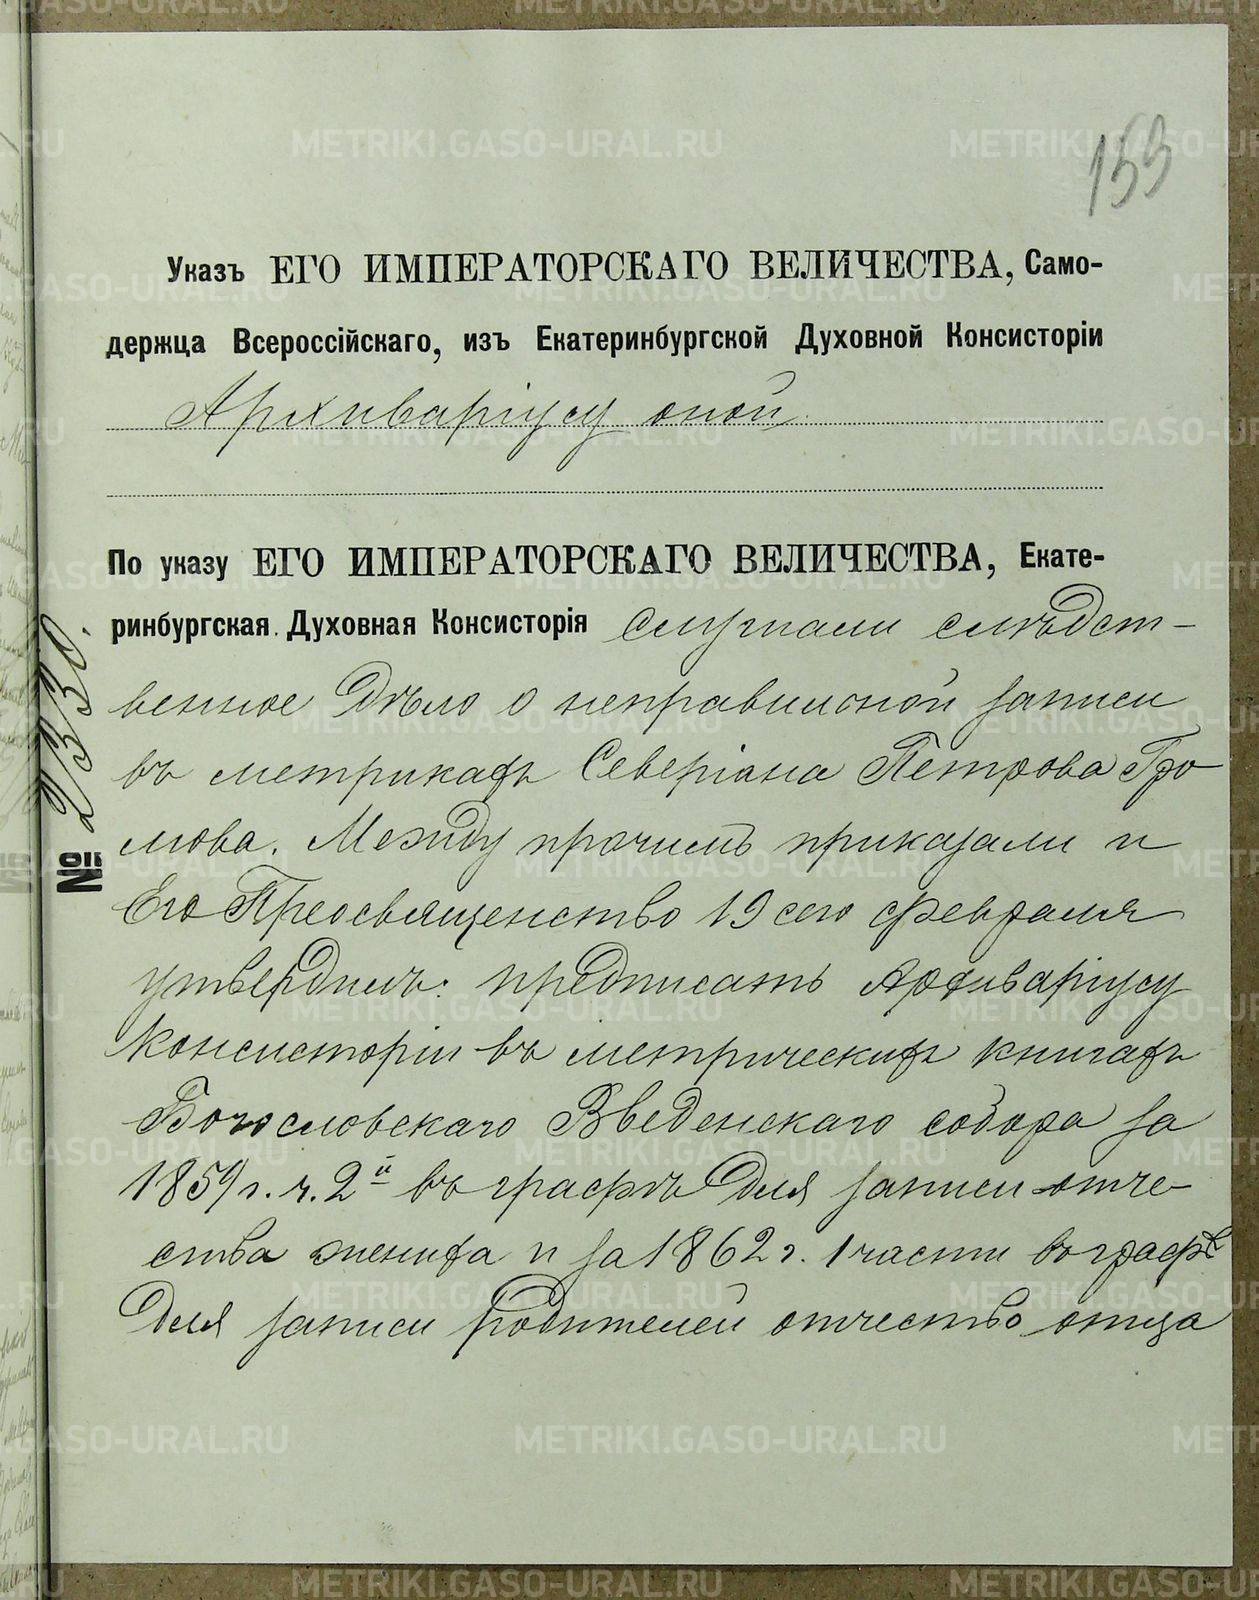 153
Указъ ЕГО ИМПЕРАТОРСКАГО ВЕЛИЧЕСТВА, Само-
держца Всероссійскаго, изъ Екатеринбургской Духовной Консисторіи
Архиваріусу оной.
По указу ЕГО ИМПЕРАТОРСКАГО ВЕЛИЧЕСТВА, Екате-
ринбургская Духовная Консисторія слушали слѣдст-
венное дѣло о неправильной записи
въ метрикахъ Северіана Петрова Гро
мова. Между прочимъ приказали и
Его Преосвященство 19 сего февраля
утвердилъ: предписать Архиваріусу
Консисторіи въ метрическихъ книгахъ
Богословскаго Введенскаго собора за
1859 г. ч. 2й въ графѣ для записи отче-
ства жениха и за 1862 г. 1 части въ графѣ
для записи родителей отчество отца
№ 2330.
METRIKI.GASO-URAL.RU